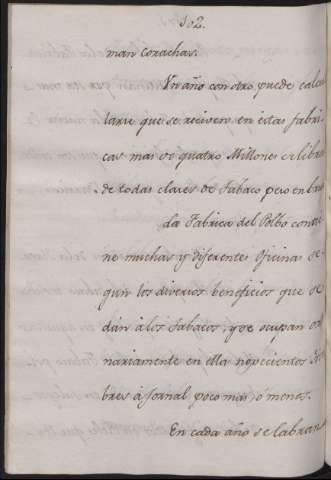 102.
man corachas.
Un año con otro puede calcu
larse que se reciven en estas fabri
cas mas de quatro Millones de libra
de todas clases de Tabaco pero en bru
La Fabrica del Polbo contie
ne muchas y diferentes Oficinas se
gun los diversos beneficios que se
dán à los tabacos, y se ocupan or
nariamente en ella novecientos
bres à Jornal poco mas, ó menos.
En cada año se labran